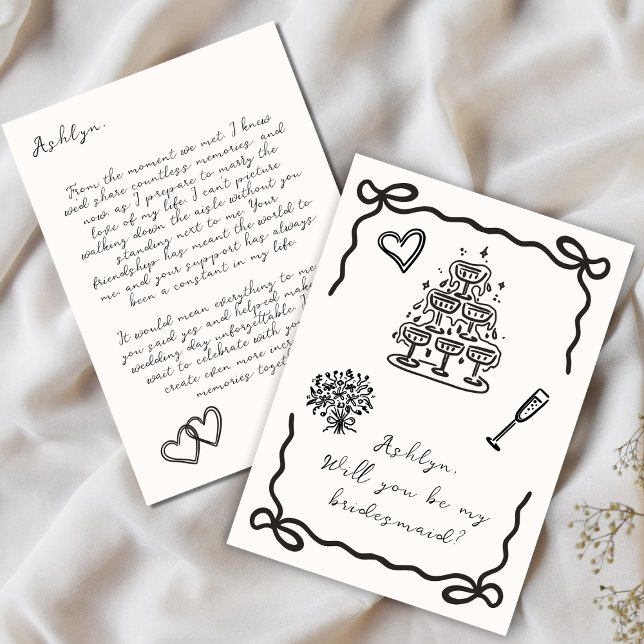 Ashlyn,
From the moment we met, I knew
we'd share countless memories, and
now, as I prepare to marry the
love of my life, I can't picture
walking down the aisle without you
standing next to me. Your
friendship has meant the world to
me, and your support has always
been a constant in my life.
It would mean everything to me
you said yes and helped make
wedding day unforgettable. I
wait to celebrate with you
create even more
memories
Ashlyn,
Will you be my
bridesmaid?